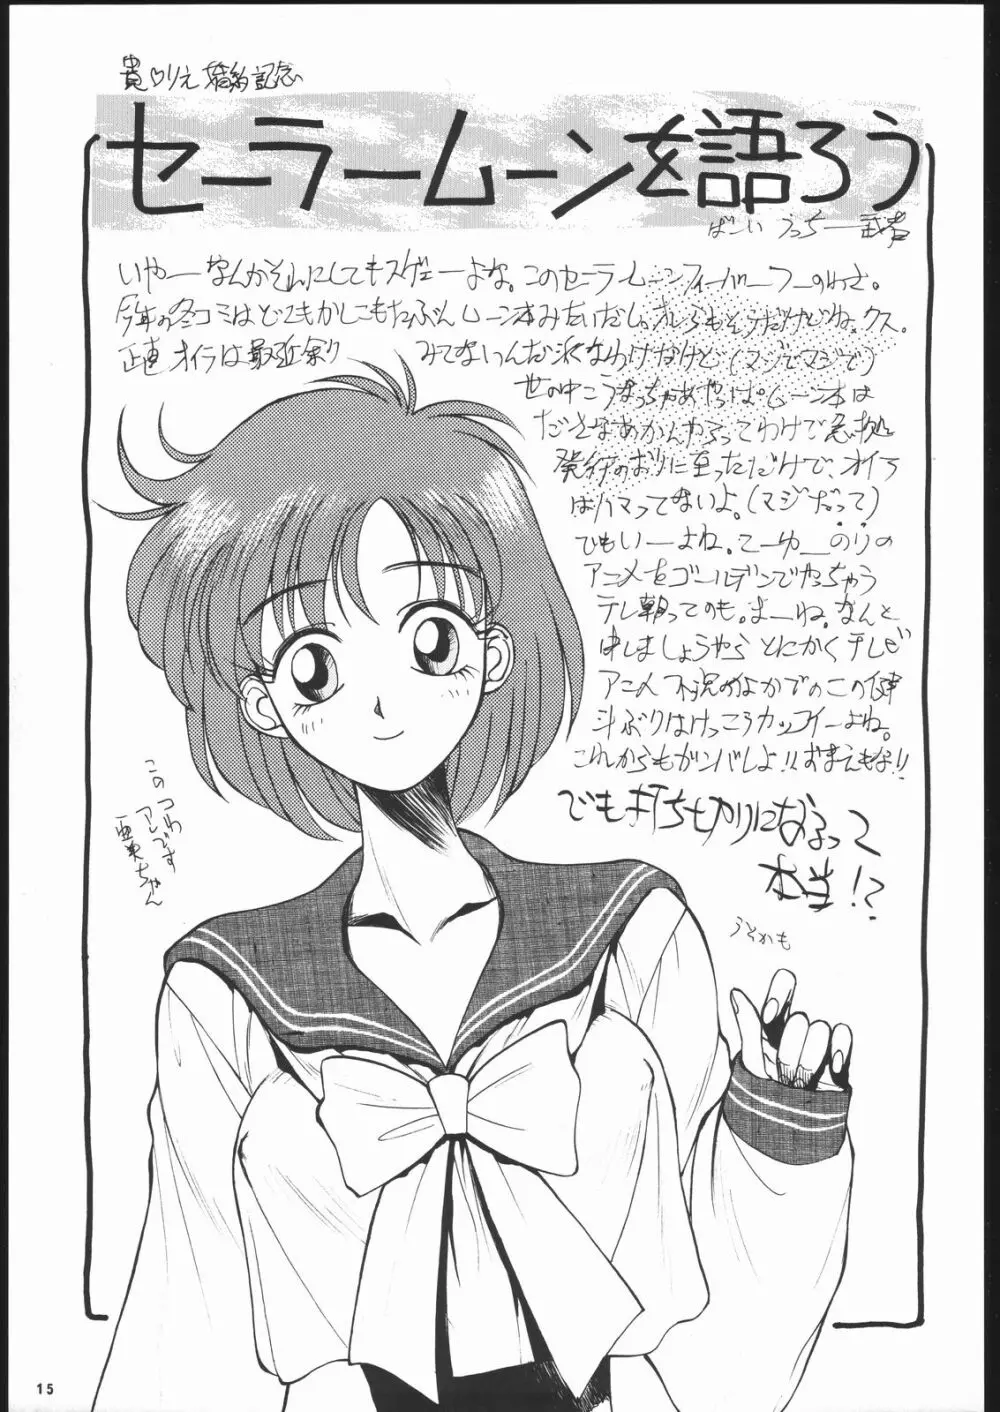 貴♡りえ婚約記念
セーラームーンを語ろう
ばーい うっちー武者
いやーなんかそんにしてもスゲェーよな。このセーラームーンフィーバーつーのわさ。
今年の冬コミはどこもかしこもたぶんムーン本みたいだし。オレらもそうだけどね、クス。
正直オイラは最近余り みてないんだ なわけなけど(マジでマジで)
世の中こうなっちゃあやっぱムーン本は
ださなあかんやろってわけで急拠
発行のおりに至っただけで、オイラ
はハマってないよ。(マジだって)
でもいーよね。こーゆーのりの
アニメをゴールデンでやっちゃう
テレ朝ってのも。まーね。なんと
申しましょうやら とにかくテレビ
アニメ不況のなかでのこの健
斗ぶりはけっこうカッコイーよね。
これからもガンバレよ!!おまえもな!!
でも打ち切りになるって
本当!?
うそかも
このつわ
アレです
亜美ちゃん
15